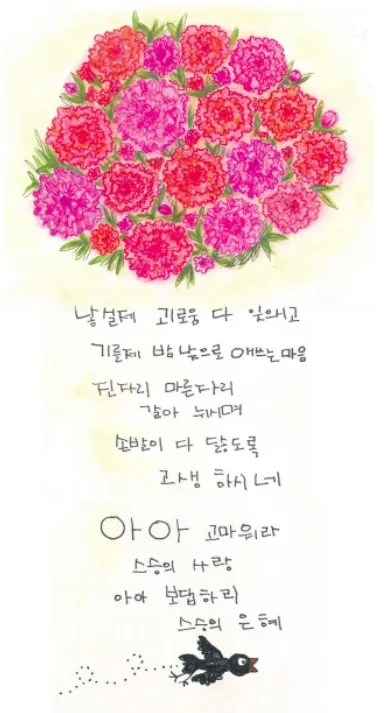 낳실제 괴로움 다 잊으시고
기를제 밤낮으로 애쓰는 마음
진자리 마른자리
갈아 뉘시며
손발이 다 닳도록
고생 하시네
아아 고마워라
스승의 사랑
아아 보답하리
스승의 은혜